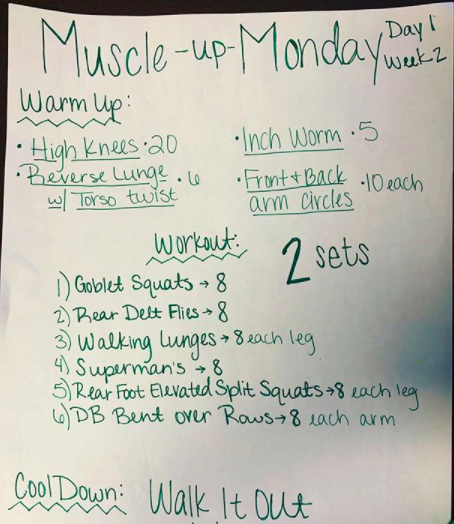 Muscle-up-Monday Day 1
Week 2
Warm Up:
• High Knees • 20
• Inch Worm • 5
• Reverse Lunge w/ Torso twist • 6
• Front + Back arm circles • 10 each
Workout:
2 sets
1) Goblet Squats → 8
2) Rear Delt Flies → 8
3) Walking Lunges → 8 each leg
4) Superman's → 8
5) Rear Foot Elevated Split Squats → 8 each leg
6) DB Bent over Rows → 8 each arm
Cool Down: Walk It Out